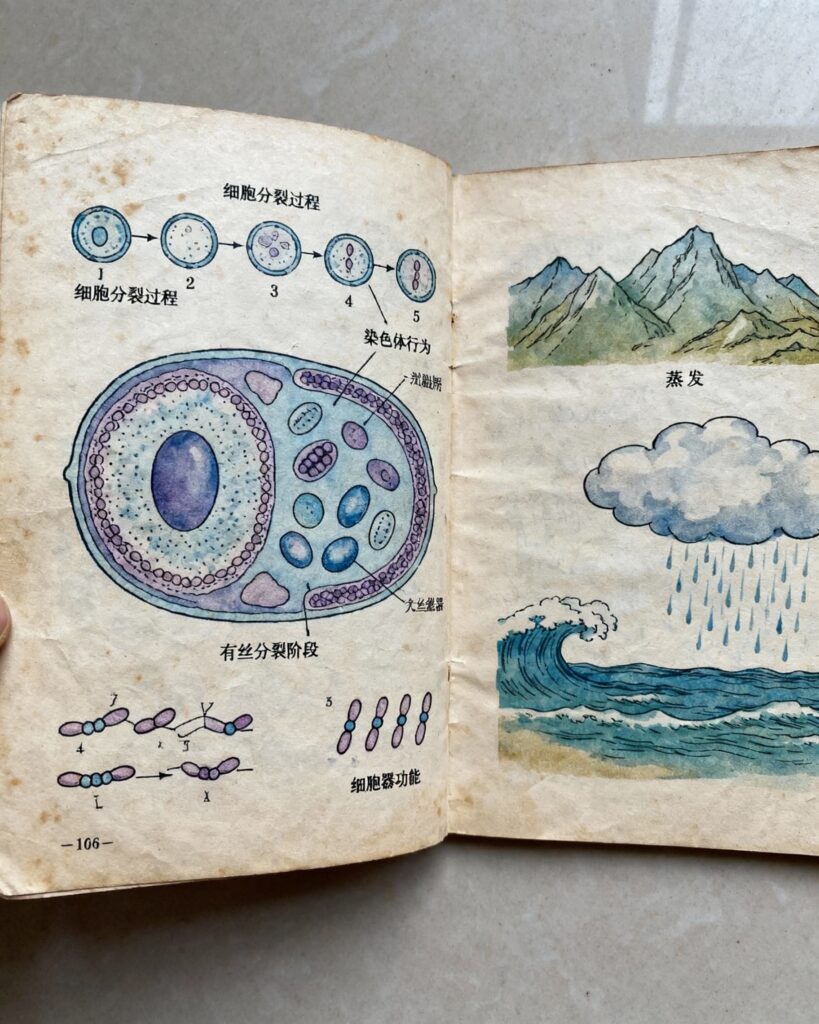 细胞分裂过程
1
2
3
4
5
细胞分裂过程
染色体行为
有丝分裂阶段
7
4
5
3
细胞器功能
—106—
蒸发